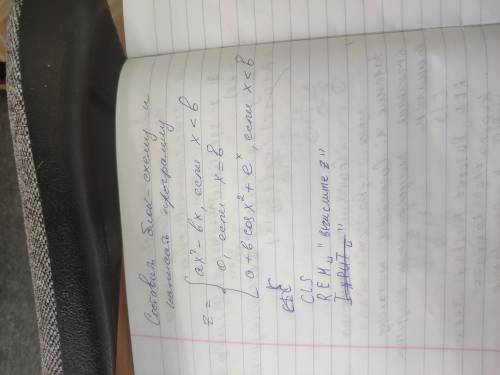 Составить блок-схему и
написать программу
z = { ax² - bx, если x < b
0, если x = b
a + b cos x² + eˣ, если x < b
CLS
REM ␣ "вычислите z"
INPUT ␣ "